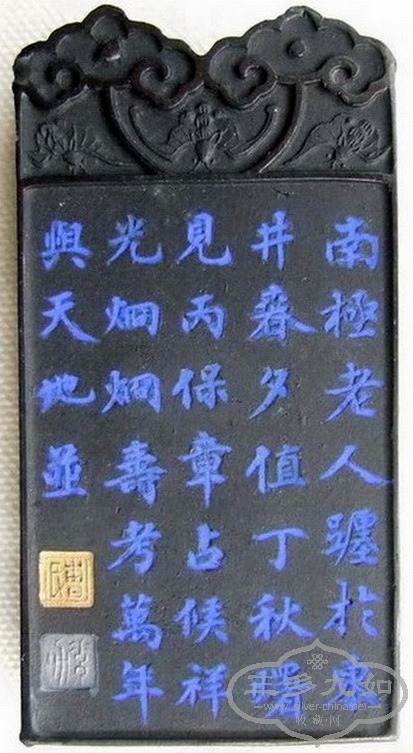 南極老人躔於東
井春夕值丁秋曙
見丙保章占候祥
光烱烱壽考萬年
與天地並
www.silver-china.net
收藏网